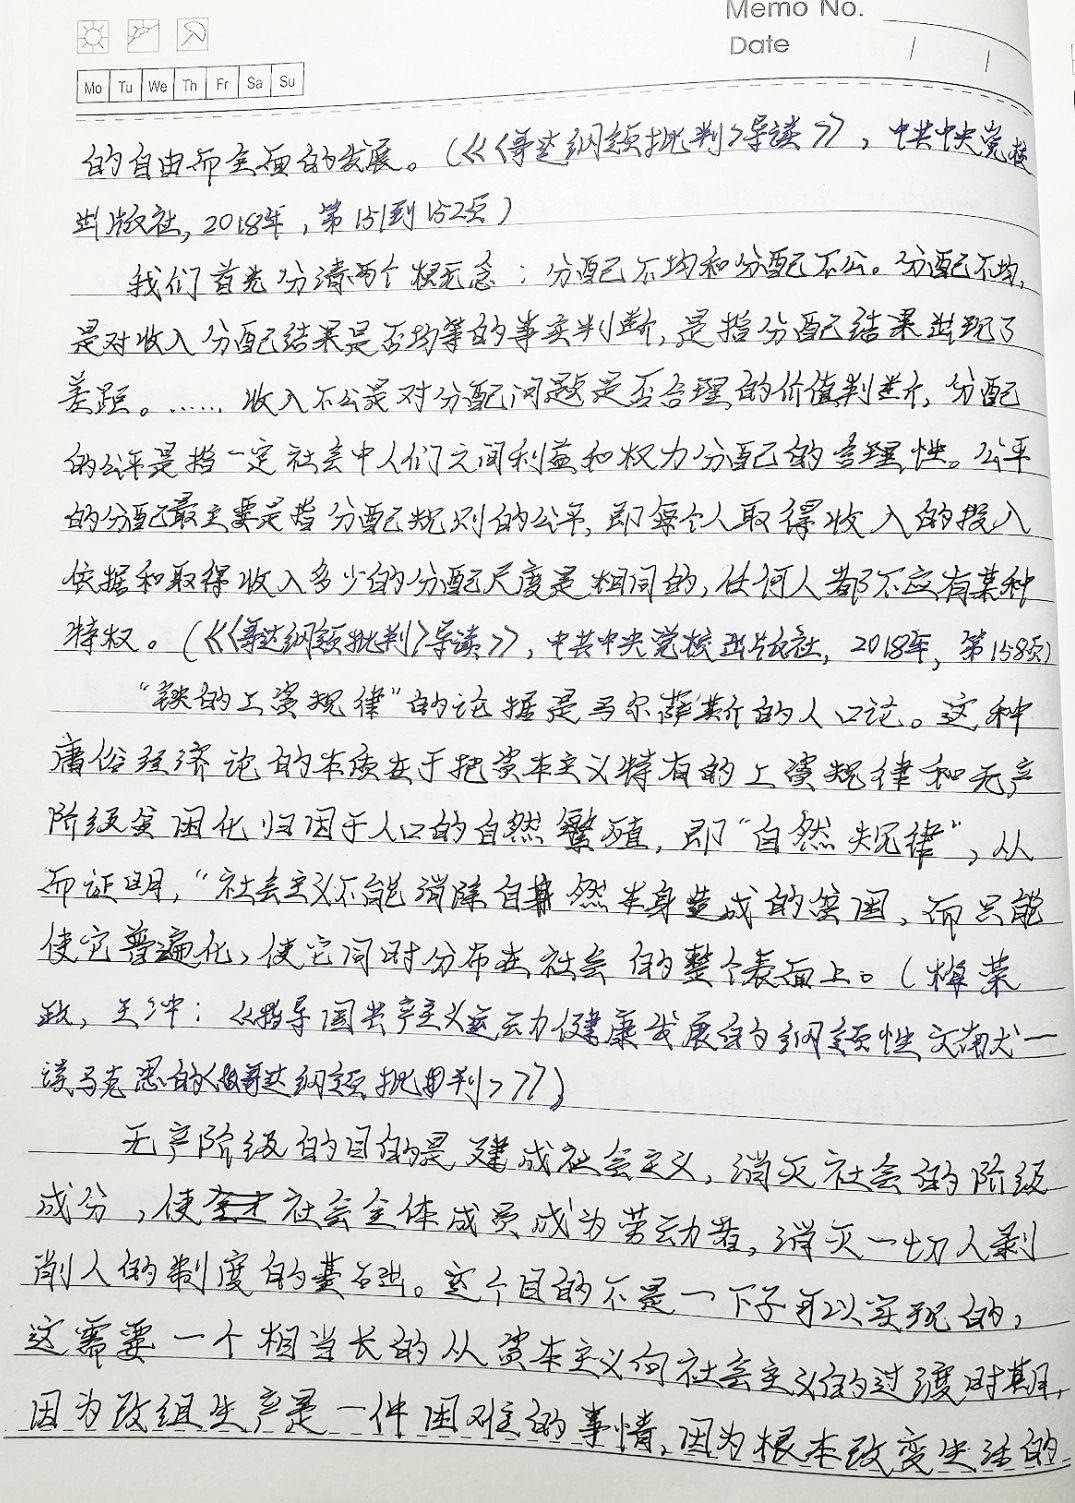 Memo No.
Date / /
Mo Tu We Th Fr Sa Su
的自由而全面的发展。(《〈哥达纲领批判〉导读》，中共中央党校
出版社，2018年，第151到152页)
我们首先分清两个概念：分配不均和分配不公。分配不均，
是对收入分配结果是否均等的事实判断，是指分配结果出现了
差距。…… 收入不公是对分配问题是否合理的价值判断，分配
的公平是指一定社会中人们之间利益和权力分配的合理性。公平
的分配最主要是指分配规则的公平，即每个人取得收入的投入
依据和取得收入多少的分配尺度是相同的，任何人都不应有某种
特权。(《〈哥达纲领批判〉导读》，中共中央党校出版社，2018年，第158页)
“铁的工资规律”的论据是马尔萨斯的人口论。这种
庸俗经济论的本质在于把资本主义特有的工资规律和无产
阶级贫困化归因于人口的自然繁殖，即“自然规律”，从
而证明，“社会主义不能消除自然本身造成的贫困，而只能
使它普遍化，使它同时分布在社会的整个表面上。(梅荣
政，王冲：《指导国共产主义运动健康发展的纲领性文献—
读马克思的〈哥达纲领批判〉》)
无产阶级的目的是建成社会主义，消灭社会的阶级
成分，使社会全体成员成为劳动者，消灭一切人剥
削人的制度的基础。这个目的不是一下子可以实现的，
这需要一个相当长的从资本主义向社会主义的过渡时期，
因为改组生产是一件困难的事情，因为根本改变生活的